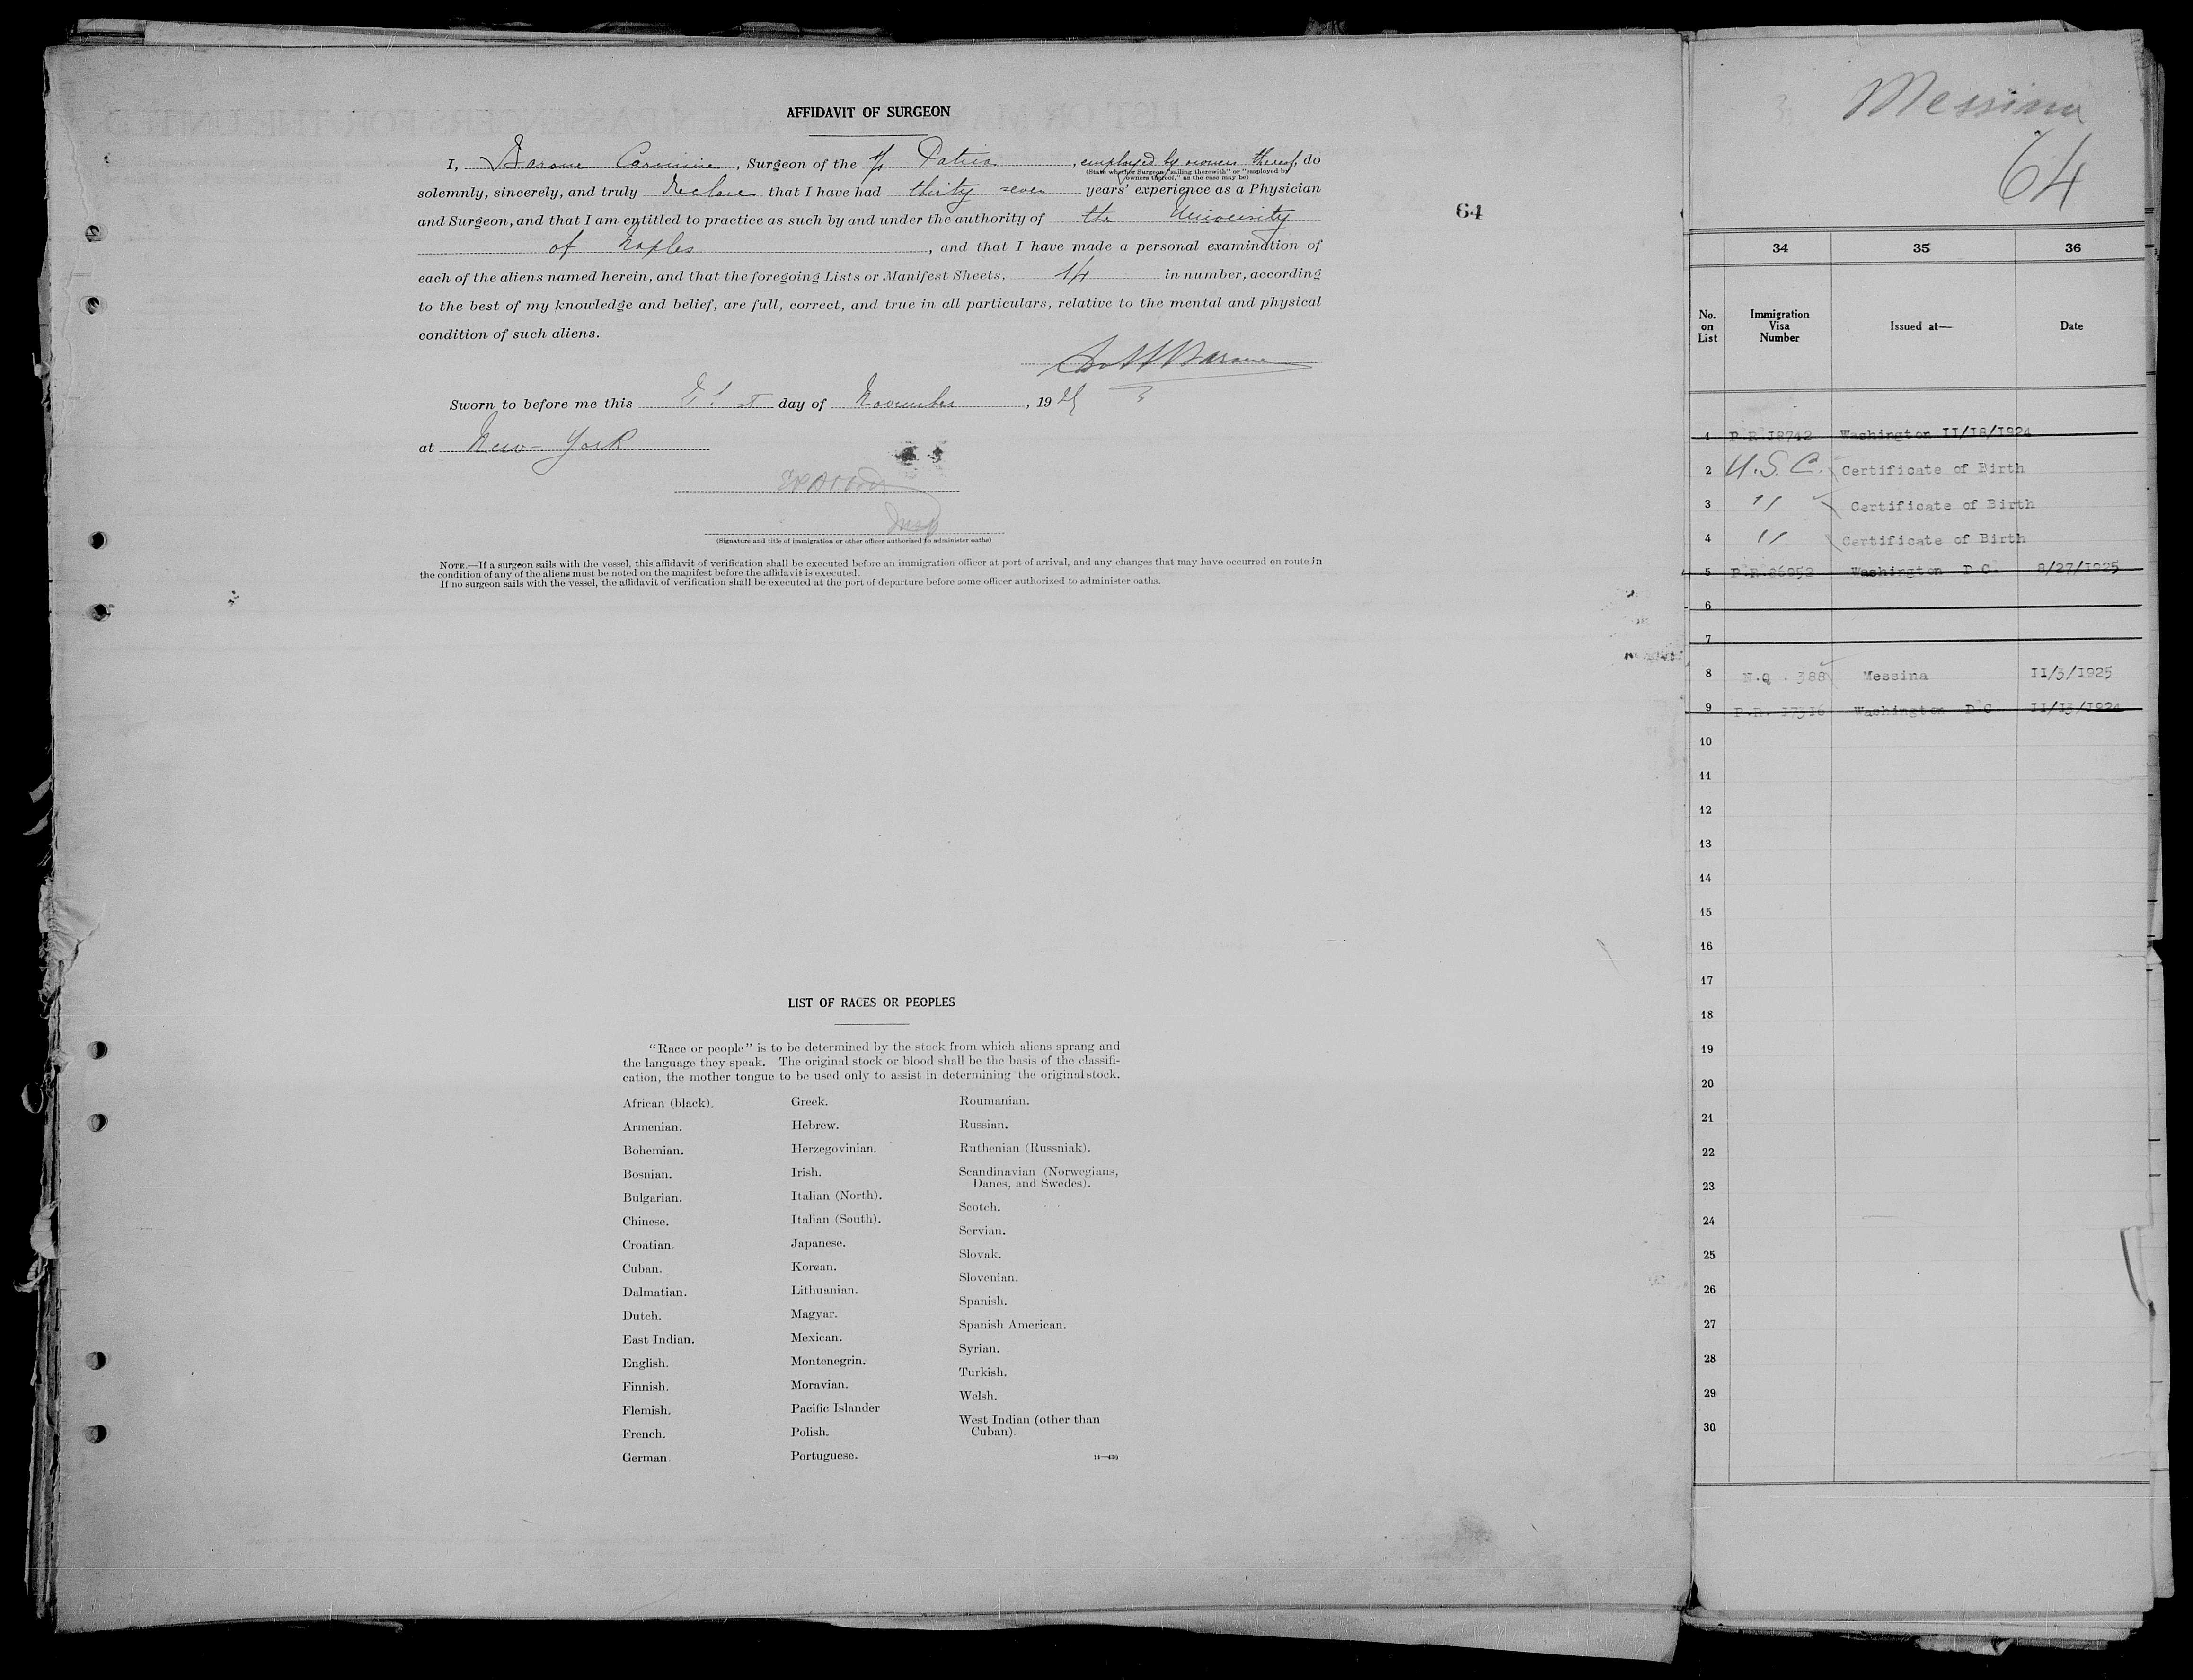 AFFIDAVIT OF SURGEON
I, Barone Carmine, Surgeon of the s/s Patria, employed by owners thereof, do
(State whether Surgeon "sailing therewith" or "employed by
owners thereof," as the case may be)
solemnly, sincerely, and truly declare that I have had thirty seven years' experience as a Physician
and Surgeon, and that I am entitled to practice as such by and under the authority of the University
of Naples, and that I have made a personal examination of
each of the aliens named herein, and that the foregoing Lists or Manifest Sheets, 14 in number, according
to the best of my knowledge and belief, are full, correct, and true in all particulars, relative to the mental and physical
condition of such aliens.
Barone
Sworn to before me this day of November, 19
at New-York
Insp
(Signature and title of immigration or other officer authorized to administer oaths)
NOTE.—If a surgeon sails with the vessel, this affidavit of verification shall be executed before an immigration officer at port of arrival, and any changes that may have occurred en route in
the condition of any of the aliens must be noted on the manifest before the affidavit is executed.
If no surgeon sails with the vessel, the affidavit of verification shall be executed at the port of departure before some officer authorized to administer oaths.
64
LIST OF RACES OR PEOPLES
"Race or people" is to be determined by the stock from which aliens sprang and
the language they speak. The original stock or blood shall be the basis of the classifi-
cation, the mother tongue to be used only to assist in determining the original stock.
African (black).
Armenian.
Bohemian.
Bosnian.
Bulgarian.
Chinese.
Croatian.
Cuban.
Dalmatian.
Dutch.
East Indian.
English.
Finnish.
Flemish.
French.
German.
Greek.
Hebrew.
Herzegovinian.
Irish.
Italian (North).
Italian (South).
Japanese.
Korean.
Lithuanian.
Magyar.
Mexican.
Montenegrin.
Moravian.
Pacific Islander
Polish.
Portuguese.
Roumanian.
Russian.
Ruthenian (Russniak).
Scandinavian (Norwegians,
Danes, and Swedes).
Scotch.
Servian.
Slovak.
Slovenian.
Spanish.
Spanish American.
Syrian.
Turkish.
Welsh.
West Indian (other than
Cuban).
14—430
Messina
64
34 35 36
No. on List Immigration Visa Number Issued at— Date
1 P.R.18742 Washington II/18/1924
2 U.S.C. Certificate of Birth
3 " Certificate of Birth
4 " Certificate of Birth
5 P.R.26952 Washington D.C. 8/27/1925
6
7
8 N.Q. 388 Messina II/3/1925
9 P.R. 17316 Washington D.C. II/13/1924
10
11
12
13
14
15
16
17
18
19
20
21
22
23
24
25
26
27
28
29
30